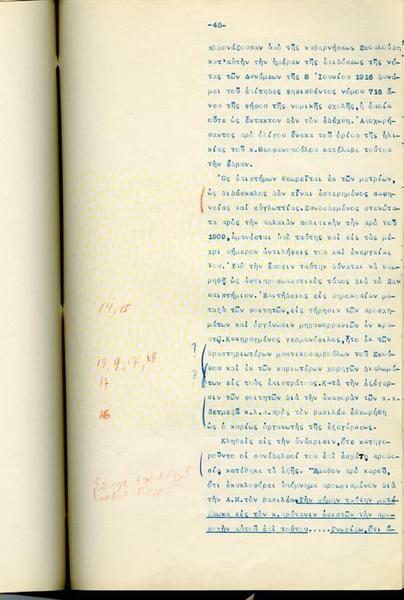 -45-
πλεονάζουσαν ὑπὸ τῆς κυβερνήσεως Σκουλούδη
κατ'αὐτὴν τὴν ἡμέραν τῆς ἐπιδόσεως τῆς νό-
τας τῶν Δυνάμεων τῆς 8 Ἰουνίου 1916 δυνά-
μει τοῦ ἐπίτηδες ψηφισθέντος νόμου 716 ἄ-
νευ τῆς ψήφου τῆς νομικῆς σχολῆς, ἡ ὁποία
οὔτε ὡς ἔκτακτον δὲν τὸν ἐδέχθη. Ἀποχωρή-
σαντος πρὸ ὀλίγου ἕνεκα τοῦ ὁρίου τῆς ἡλι-
κίας τοῦ κ. Θεοφανοπούλου κατέλαβε τούτου
τὴν ἕδραν.
Ὡς ἐπιστήμων θεωρεῖται ἐκ τῶν μετρίων,
ὡς διδάσκαλος δὲν εἶναι ἐστερημένος σαφη-
νείας καὶ εὐγλωττίας. Συνδεδεμένος στενώτα-
τα πρὸς τὴν παλαιὰν πολιτικὴν τὴν πρὸ τοῦ
1909, ἐμπνέεται ὑπὸ ταύτης καὶ εἰς τὰς μέ-
χρι σήμερον ἀντιλήψεις του καὶ ἐνεργείας
του. Ὑπὸ τὴν ἔποψιν ταύτην δύναται νὰ θεω-
ρηθῇ ὡς ἀντιπροσωπευτικὸς τύπος διὰ τὸ Παν
επιστήμιον. Ἐπιτήδειος εἰς δημοκοπίαν με-
ταξὺ τῶν φοιτητῶν, εἰς τήρησιν τῶν προσχη-
μάτων καὶ ὀργάνωσιν μηχανορραφιῶν ἐν κρυ-
πτῷ. Κεκηρυγμένος γερμανόφιλος, ἦτο ἐκ τῶν
δραστηριωτέρων μυστικοσυμβούλων τοῦ Σκου-
λούδου καὶ ἐκ τῶν κυριωτέρων χορηγῶν διαλωμά-
των εἰς τοὺς ἐπιστράτους. Κατὰ τὴν ἐξέγερ-
σιν τῶν φοιτητῶν διὰ τὴν ἀναφορὰν τῶν κ.κ.
Πετμεζᾶ κ.λ.π. πρὸς τὸν βασιλέα ἐθεωρήθη
ὡς ὁ κυρίως ὀργανωτὴς τῆς ἐξεγέρσεως.
Κληθεὶς εἰς τὴν ἀνάκρισιν, ὅτε κατηγο-
ροῦντο οἱ συνάδελφοί του ἐπὶ ἐσχάτῃ προδο-
σίᾳ κατέθηκε τὰ ἑξῆς. "Ἔμαθον πρὸ καιροῦ,
ὅτι ἐκυκλοφόρει ὑπόμνημα προωρισμένον διὰ
τὴν Α.Μ. τὸν βασιλέα. Τὴν φήμην ταύτην μετέ-
δωκα εἰς τὸν κ. πρύτανιν ἐφιστῶν τὴν προ-
σοχὴν αὐτοῦ ἐπὶ τούτου..... Γνωρίζω, ὅτι ἐ-
14, 15
?
19, 9, 17, 18
?
17
16